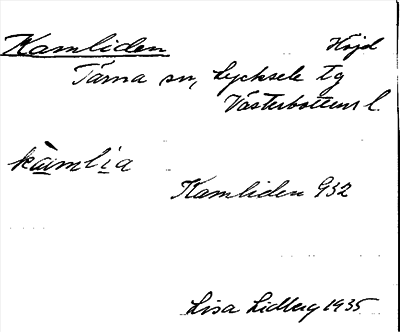 Kamliden Höjd
Tärna sn, Lycksele tg
Västerbottens l.
kàmlìa
Kamliden 932
Lisa Lidberg 1935